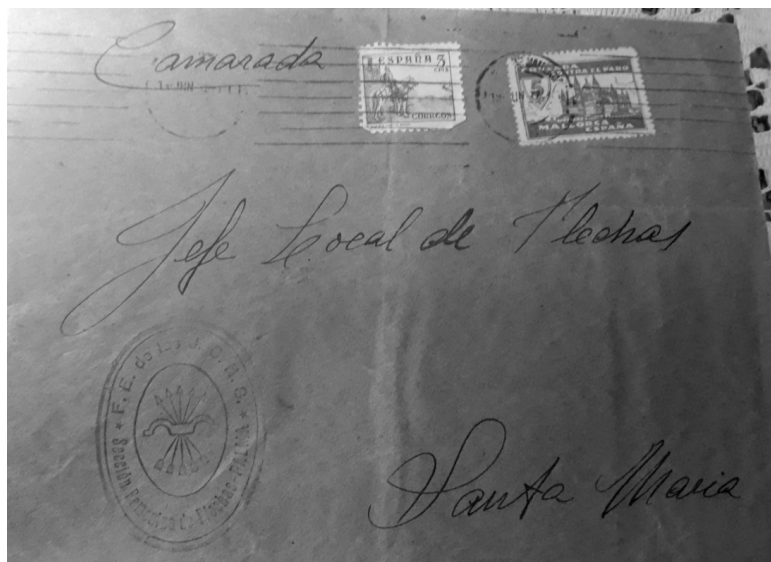 Camarada
ESPAÑA 5
CTS
CORREOS
CONTRA EL PARO
5
MALLORCA
ESPAÑA
JUN
Jefe Local de Flechas
F. E. de las J. O. N. S.
Sección Femenina de Flechas - PALMA
Santa Maria